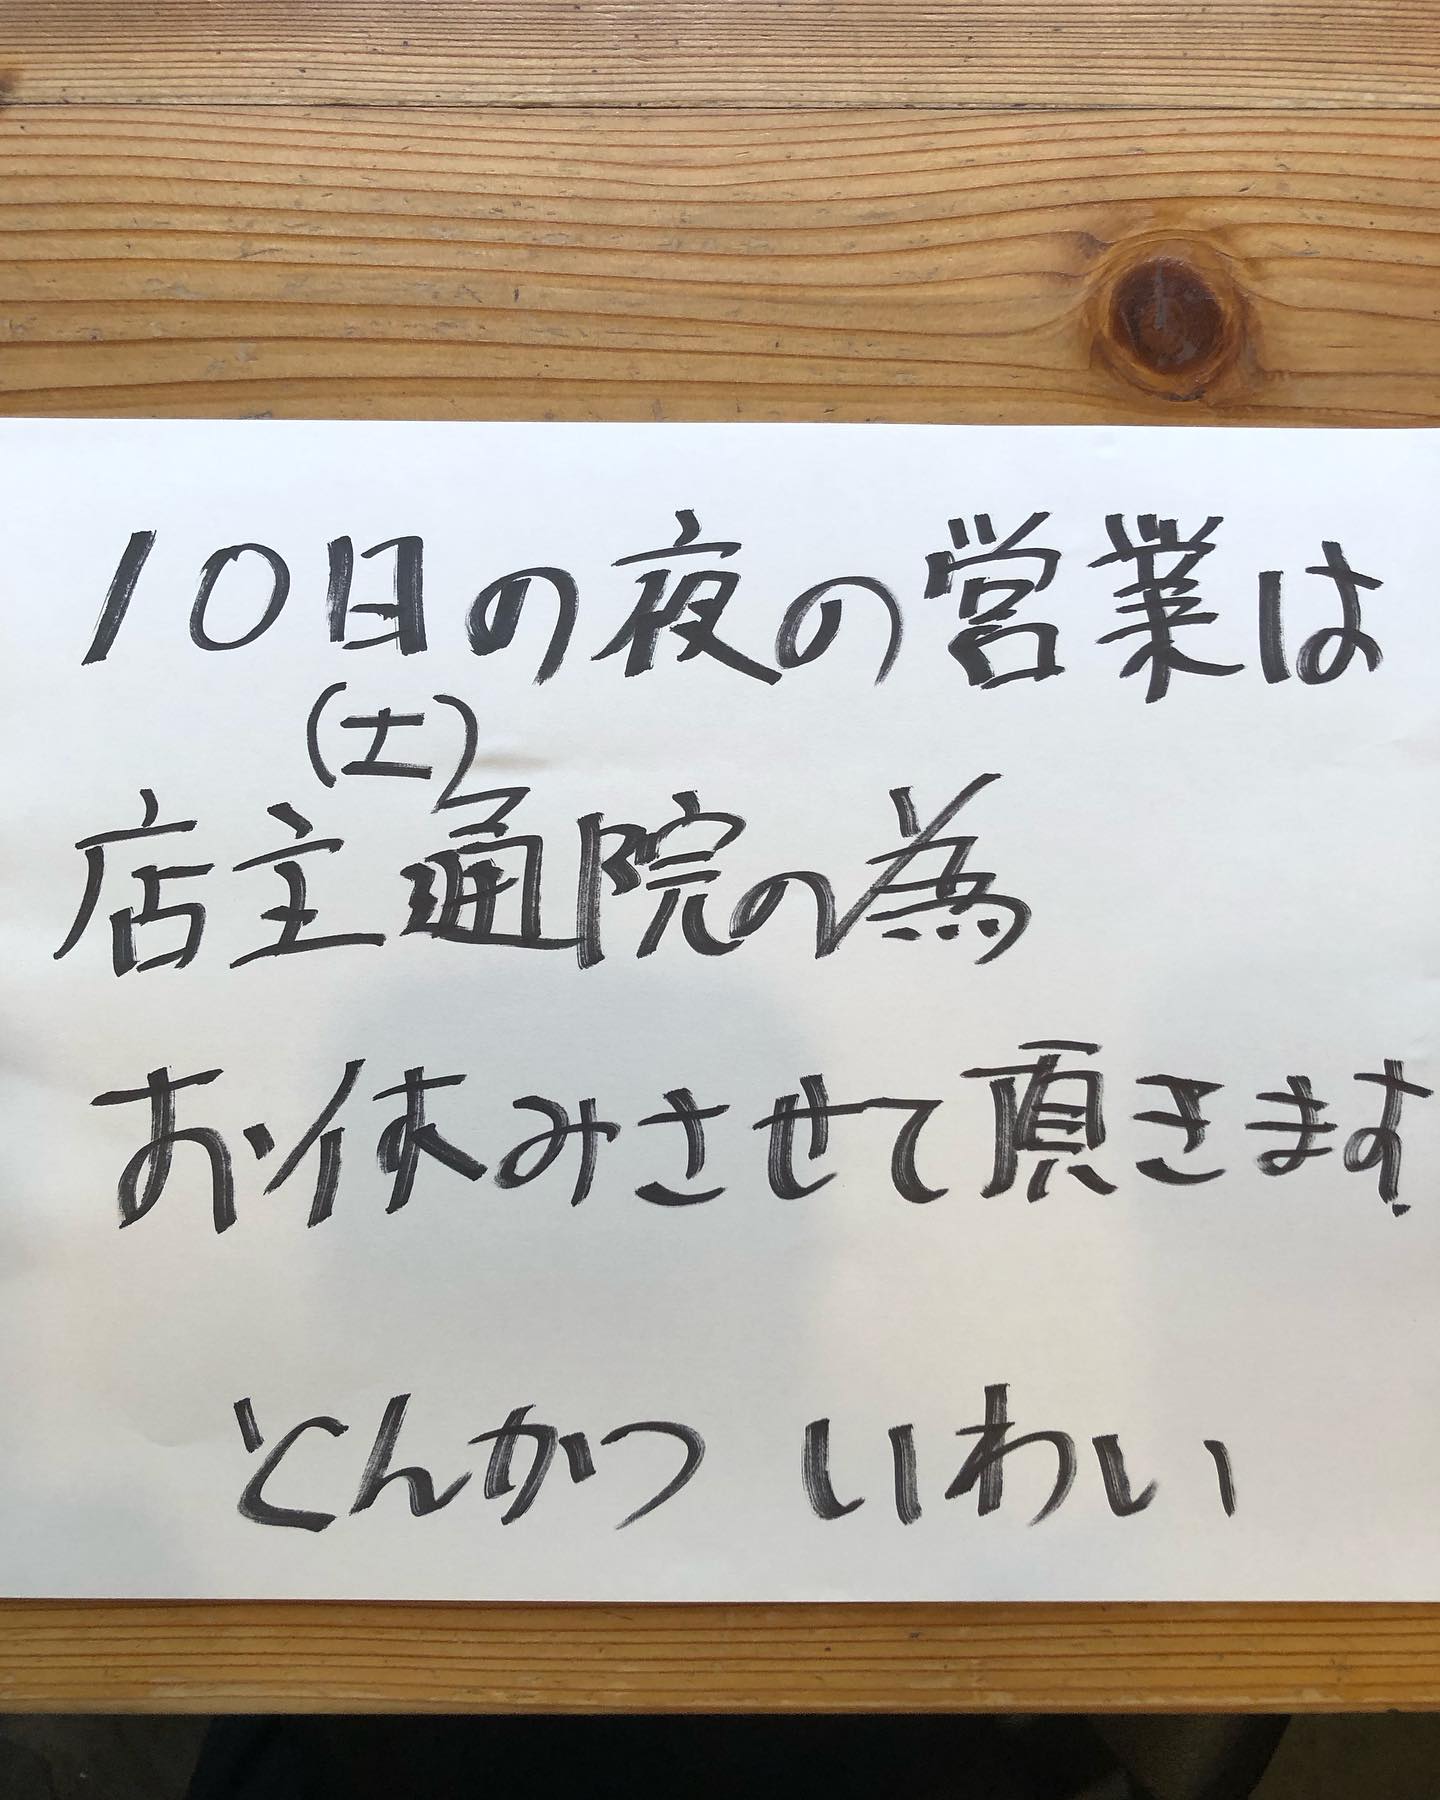 10日の夜の営業は
(土)
店主通院の為
お休みさせて頂きます.
とんかつ いわい